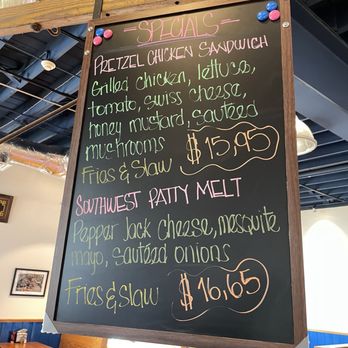 SPECIALS
PRETZEL CHICKEN SANDWICH
Grilled chicken, lettuce,
tomato, swiss cheese,
honey mustard, sauteed
mushrooms
Fries & Slaw $15,95
SOUTHWEST PATTY MELT
Pepper Jack cheese, mesquite
mayo, sauteed onions
Fries & Slaw $16,65